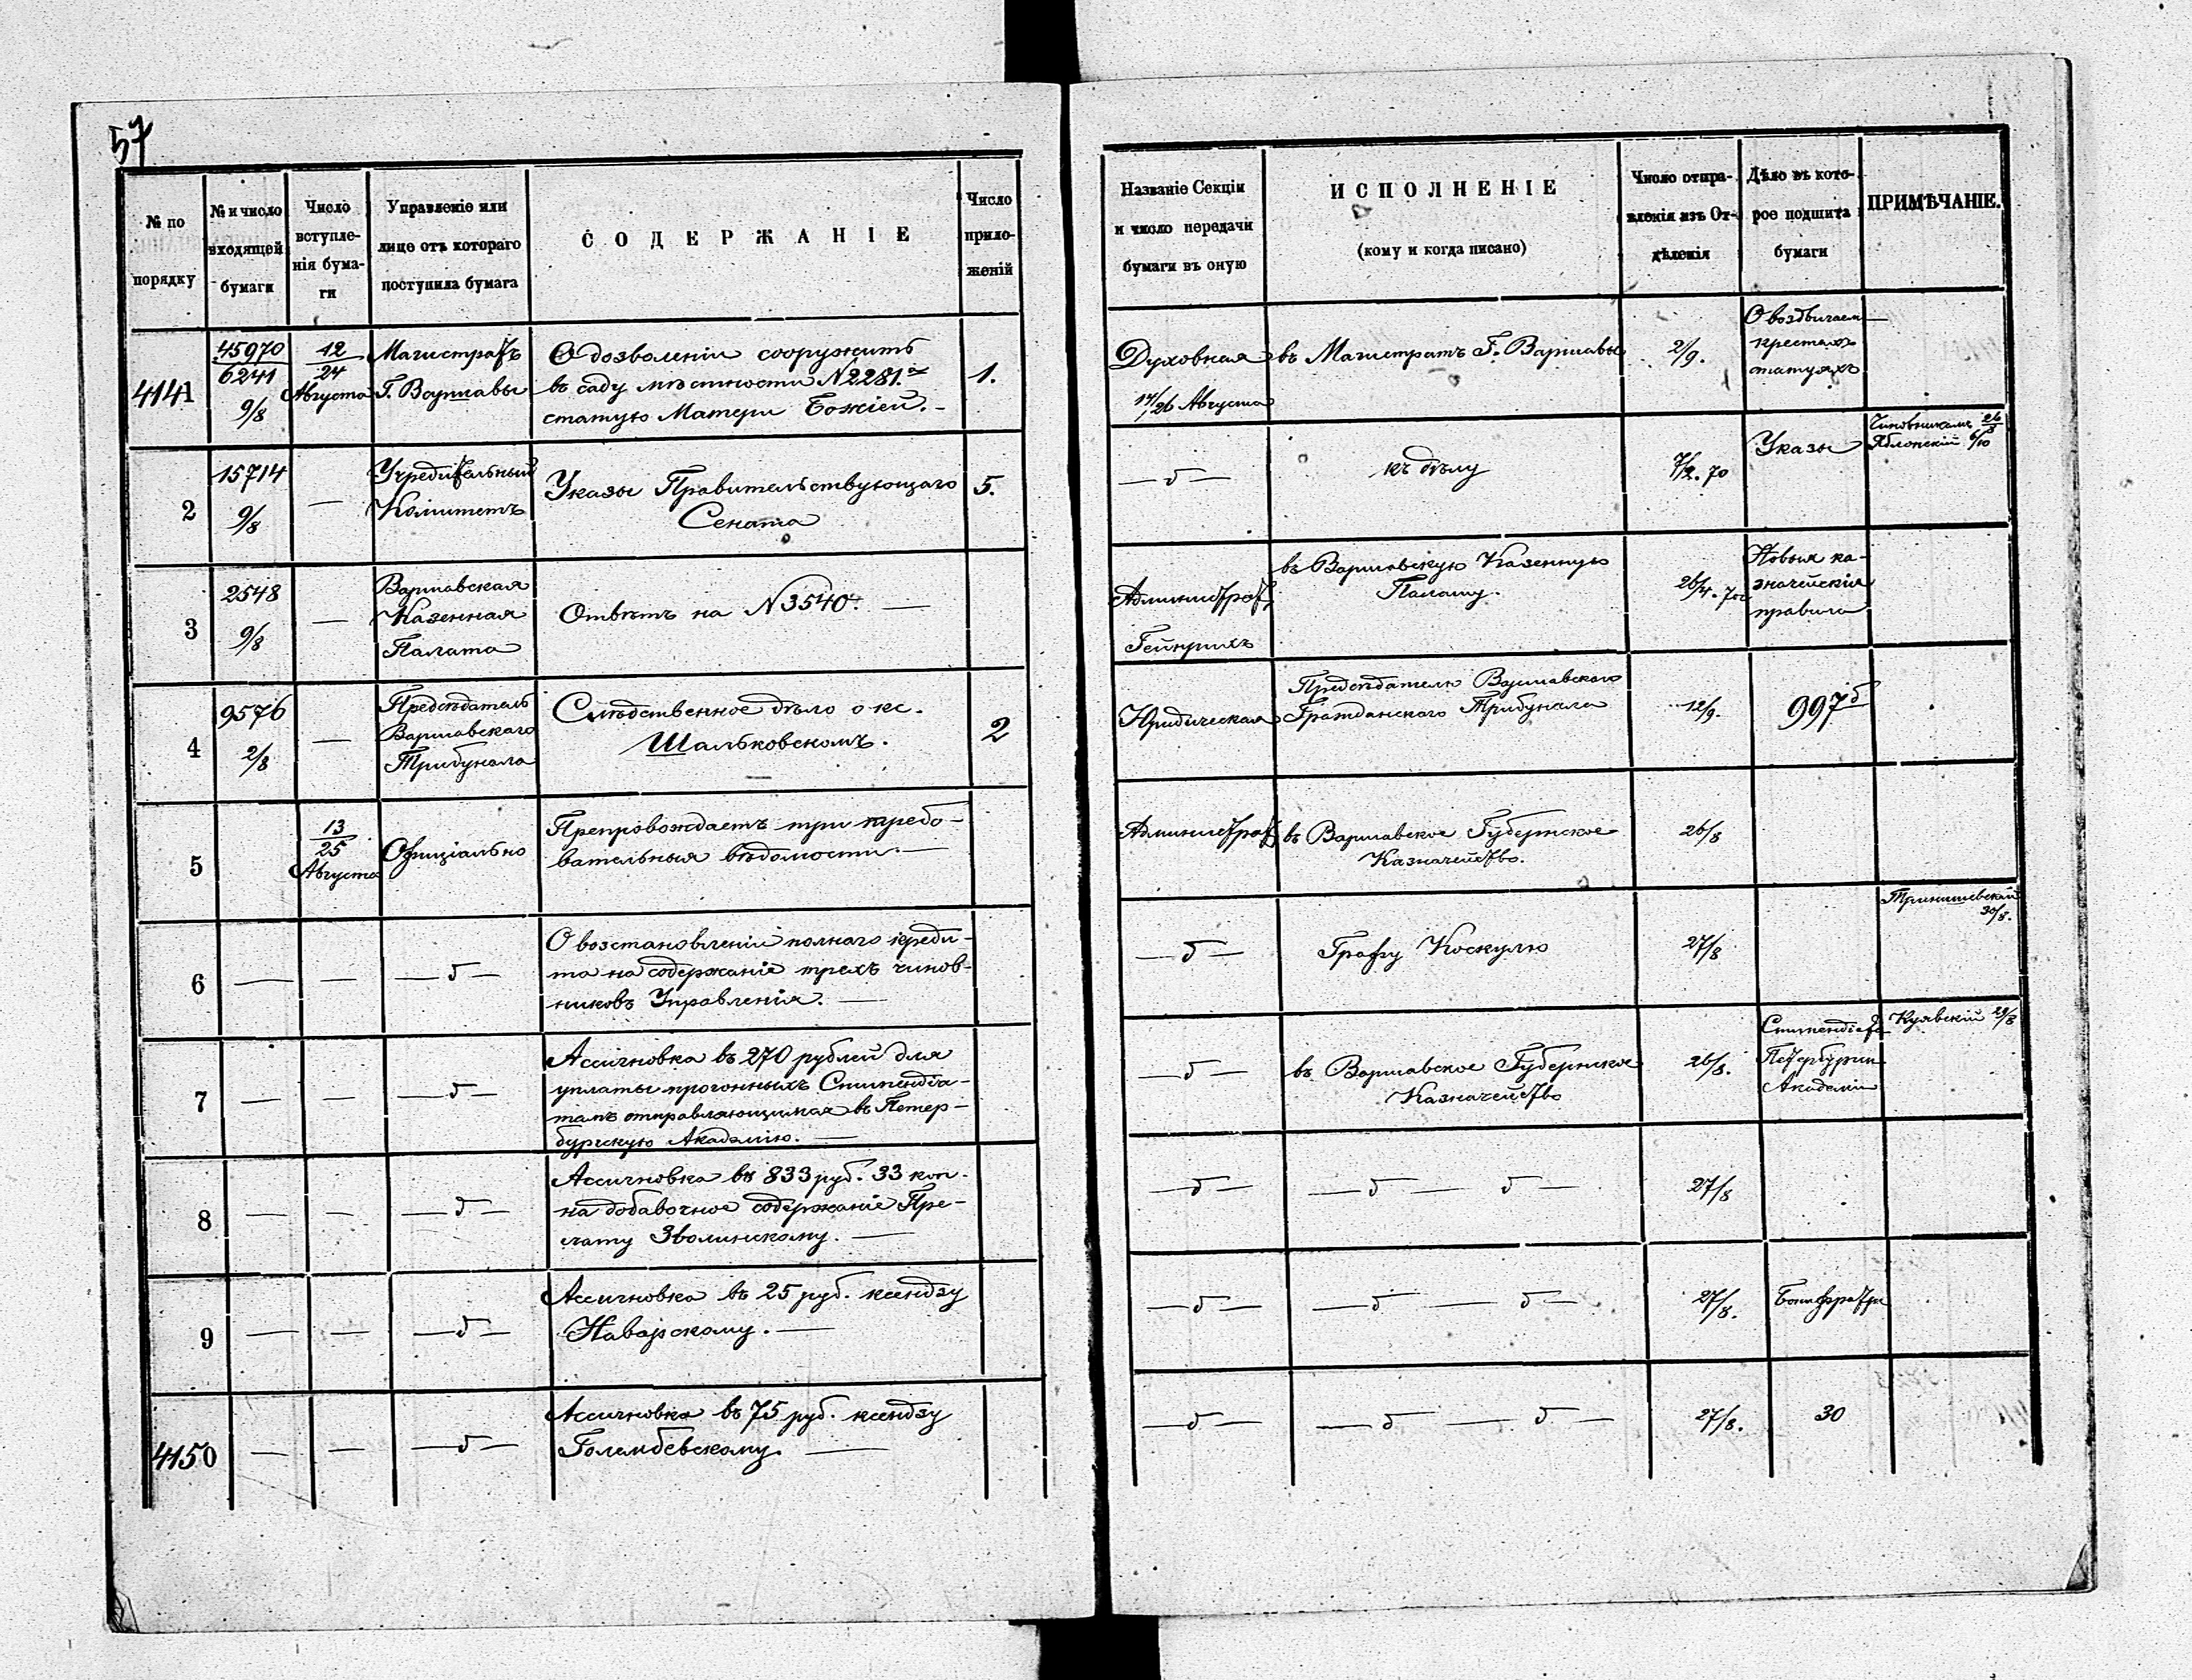 57
№ по порядку
№ и число входящей бумаги
Число вступле-
нія бума-
ги
Управленіе или
лице отъ котораго
поступила бумага
СОДЕРЖАНІЕ
Число
прило-
женій
Названіе Секціи
и число передачи
бумаги въ оную
ИСПОЛНЕНІЕ
(кому и когда писано)
Число отпра-
вленія изъ От-
дѣленія
Дѣло въ кото-
рое подшита
бумаги
ПРИМѢЧАНІЕ.
4141
45970
6241
9/8
12
24
Августа
Магистратъ
Г. Варшавы
О дозволеніи сооружить
въ саду мѣстности N 2281.
статую Матери Божіей. -
1.
Духовная
14/26 Августа
въ Магистратъ Г. Варшавы
2/9.
О воздвигаем
крестахъ
статуяхъ
—
2
15714
9/8
—
Учредительный
Комитетъ
Указы Правительствующаго
Сената
5.
— б —
къ дѣлу
7/2. 70
Указы
Чиновникамъ 26/8
Яблонскій 6/10
3
2548
9/8
—
Варшавская
Казенная
Палата
Отвѣтъ на N 3540. —
Администрат,
Гейнрихъ
въ Варшавскую Казенную
Палату.
26/4. 70
Новыя ка-
значейскія
правила
4
9576
2/8
—
Предсѣдатель
Варшавскаго
Трибунала
Слѣдственное дѣло о кс.
Шальковскомъ.
2
Юридическая
Предсѣдателю Варшавскаго
Гражданскаго Трибунала
12/9.
997б
5
13
25
Августа
Офиціально
Препровождаетъ три требо-
вательныя вѣдомости. —
Администрат
въ Варшавское Губернское
Казначейство.
26/8
6
—
—
— б —
О возстановленіи полнаго креди-
та на содержаніе трехъ чинов-
никовъ Управленія. —
— б —
Графу Коскулю
27/8
30/8.
7
—
—
— б —
Ассигновка въ 270 рублей для
уплаты прогонныхъ Стипендіа-
тамъ отправляющимся въ Петер-
бургскую Академію. —
— б —
въ Варшавское Губернское
Казначейство
26/8.
Стипендіаты
Петербургск
Академіи
Куявскій 29/8
8
—
—
— б —
Ассигновка въ 833 руб. 33 коп.
на добавочное содержаніе Пре-
лату Зволинскому. —
— б —
— б — б —
27/8
9
—
—
— б —
Ассигновка въ 25 руб. ксендзу
Наварскому. —
— б —
— б — б —
27/8.
Бонифратри
4150
—
—
— б —
Ассигновка въ 75 руб. ксендзу
Голембевскому. —
— б —
— б — б —
27/8.
30